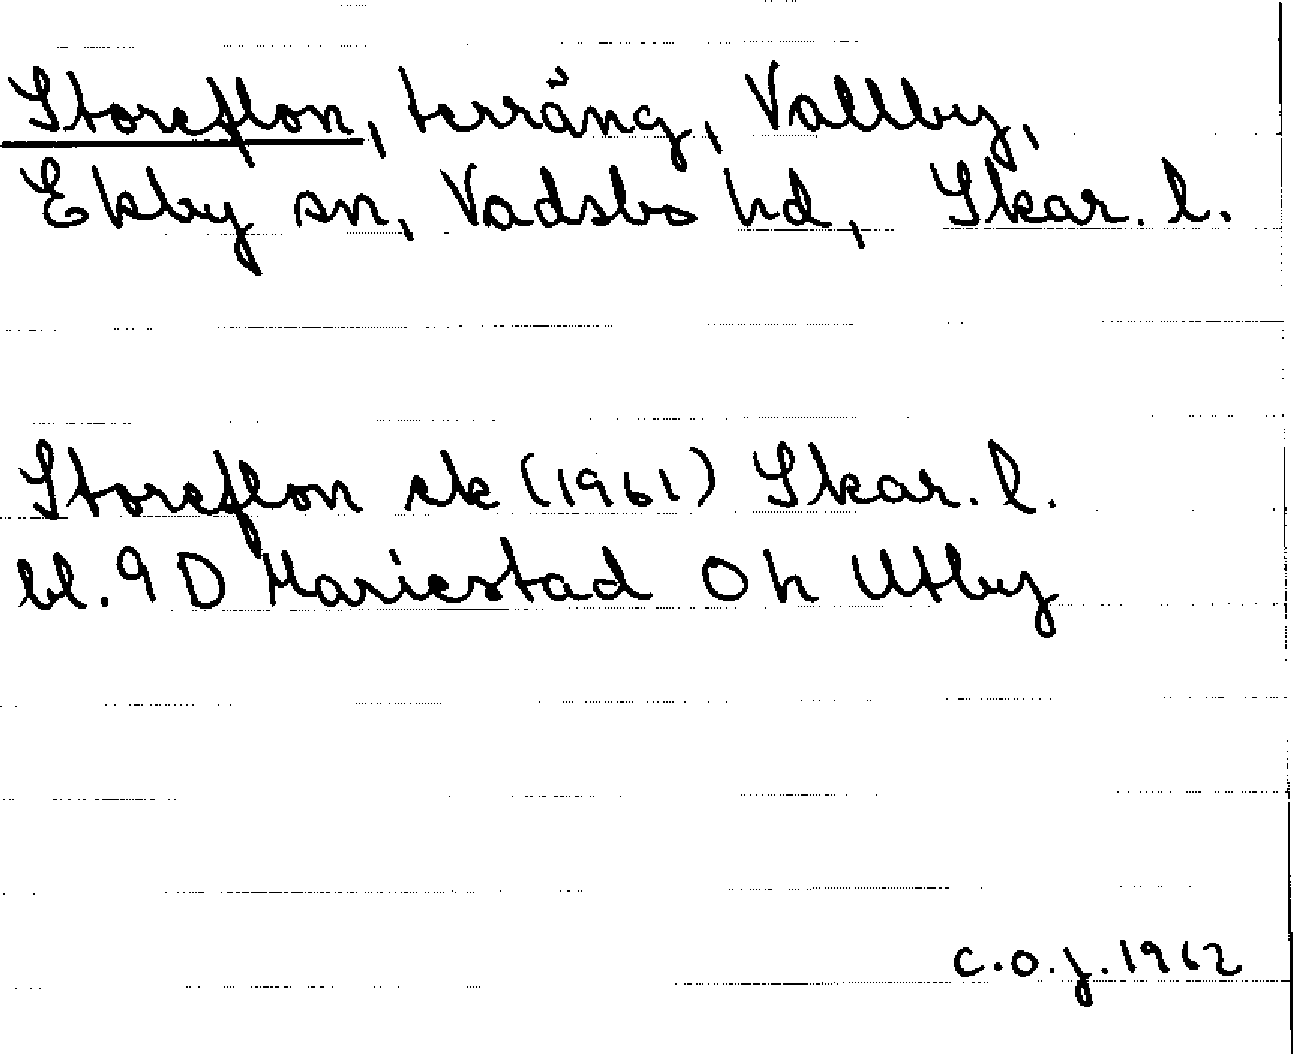 Storeflon, terräng, Vallby,
Ekby sn, Vadsbo hd, Skar. l.
Storeflon ek (1961) Skar. l.
bl. 9 D Mariestad 0h Utby
C.O.J. 1962